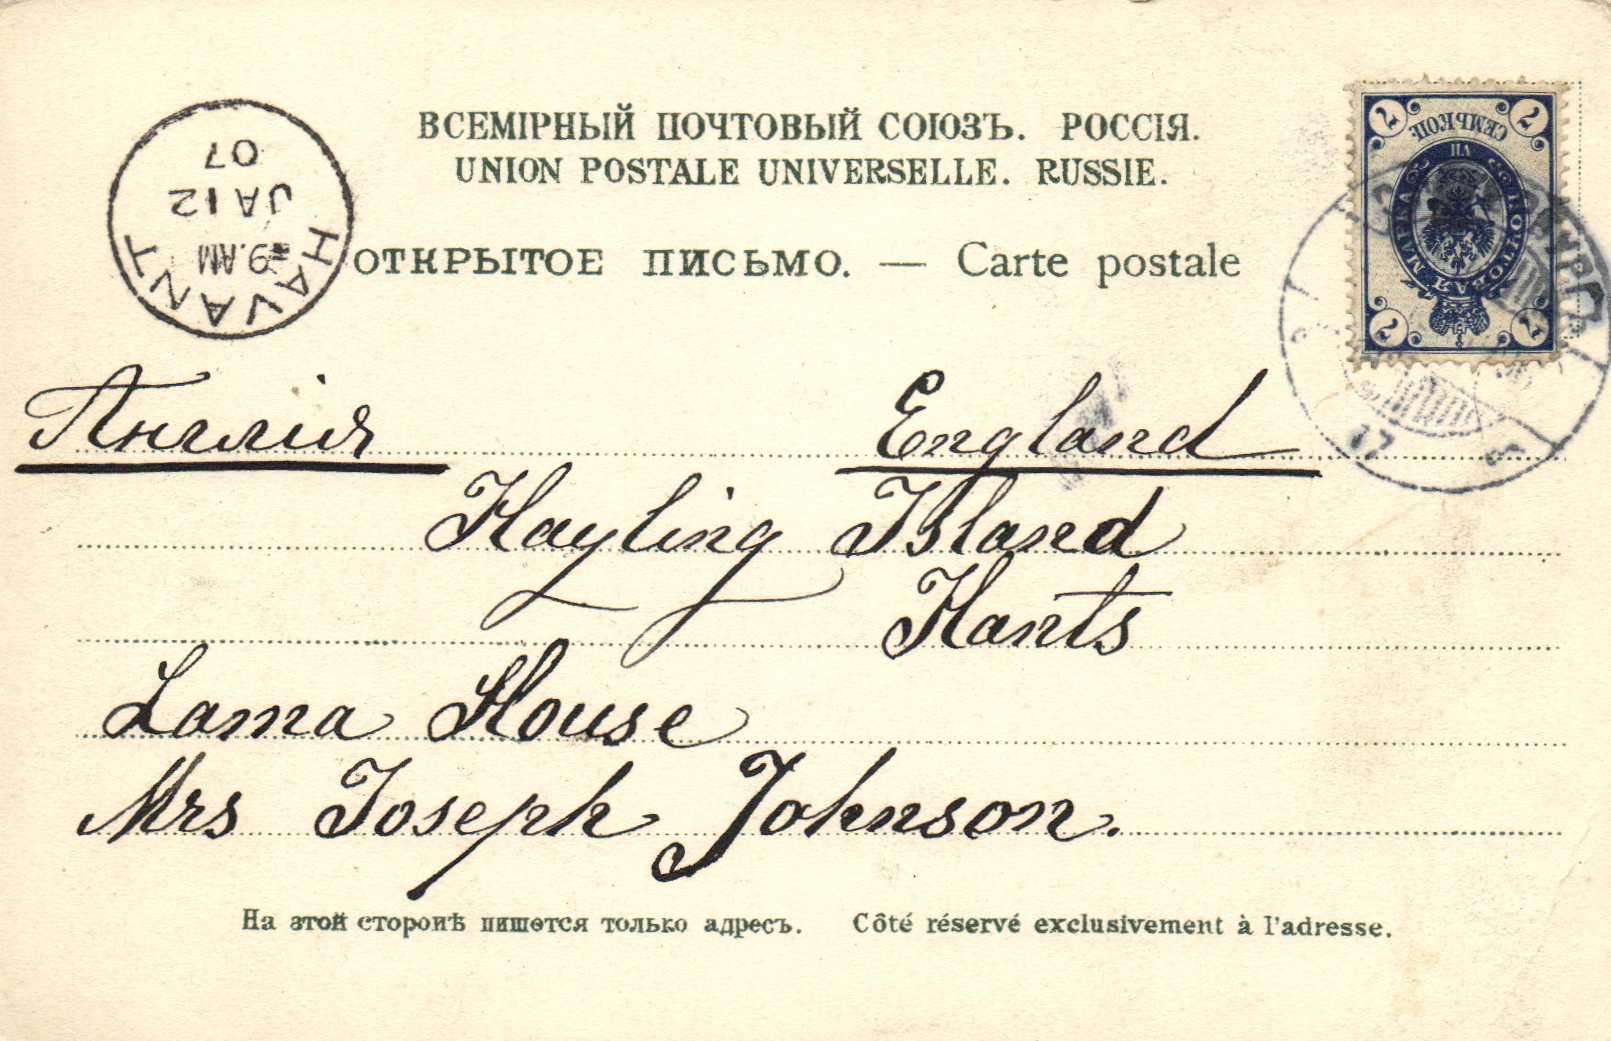 ВСЕМІРНЫЙ ПОЧТОВЫЙ СОЮЗЪ. РОССІЯ.
UNION POSTALE UNIVERSELLE. RUSSIE.
ОТКРЫТОЕ ПИСЬМО. — Carte postale
HAVANT
9.AM
JA 12
07
7 7
СЕМЬ КОП
VII
ПОЧТОВАЯ МАРКА
7 7
Англія England
Hayling Island
Hants
Lama House
Mrs Joseph Johnson.
На этой сторонѣ пишется только адресъ. Côté réservé exclusivement à l'adresse.